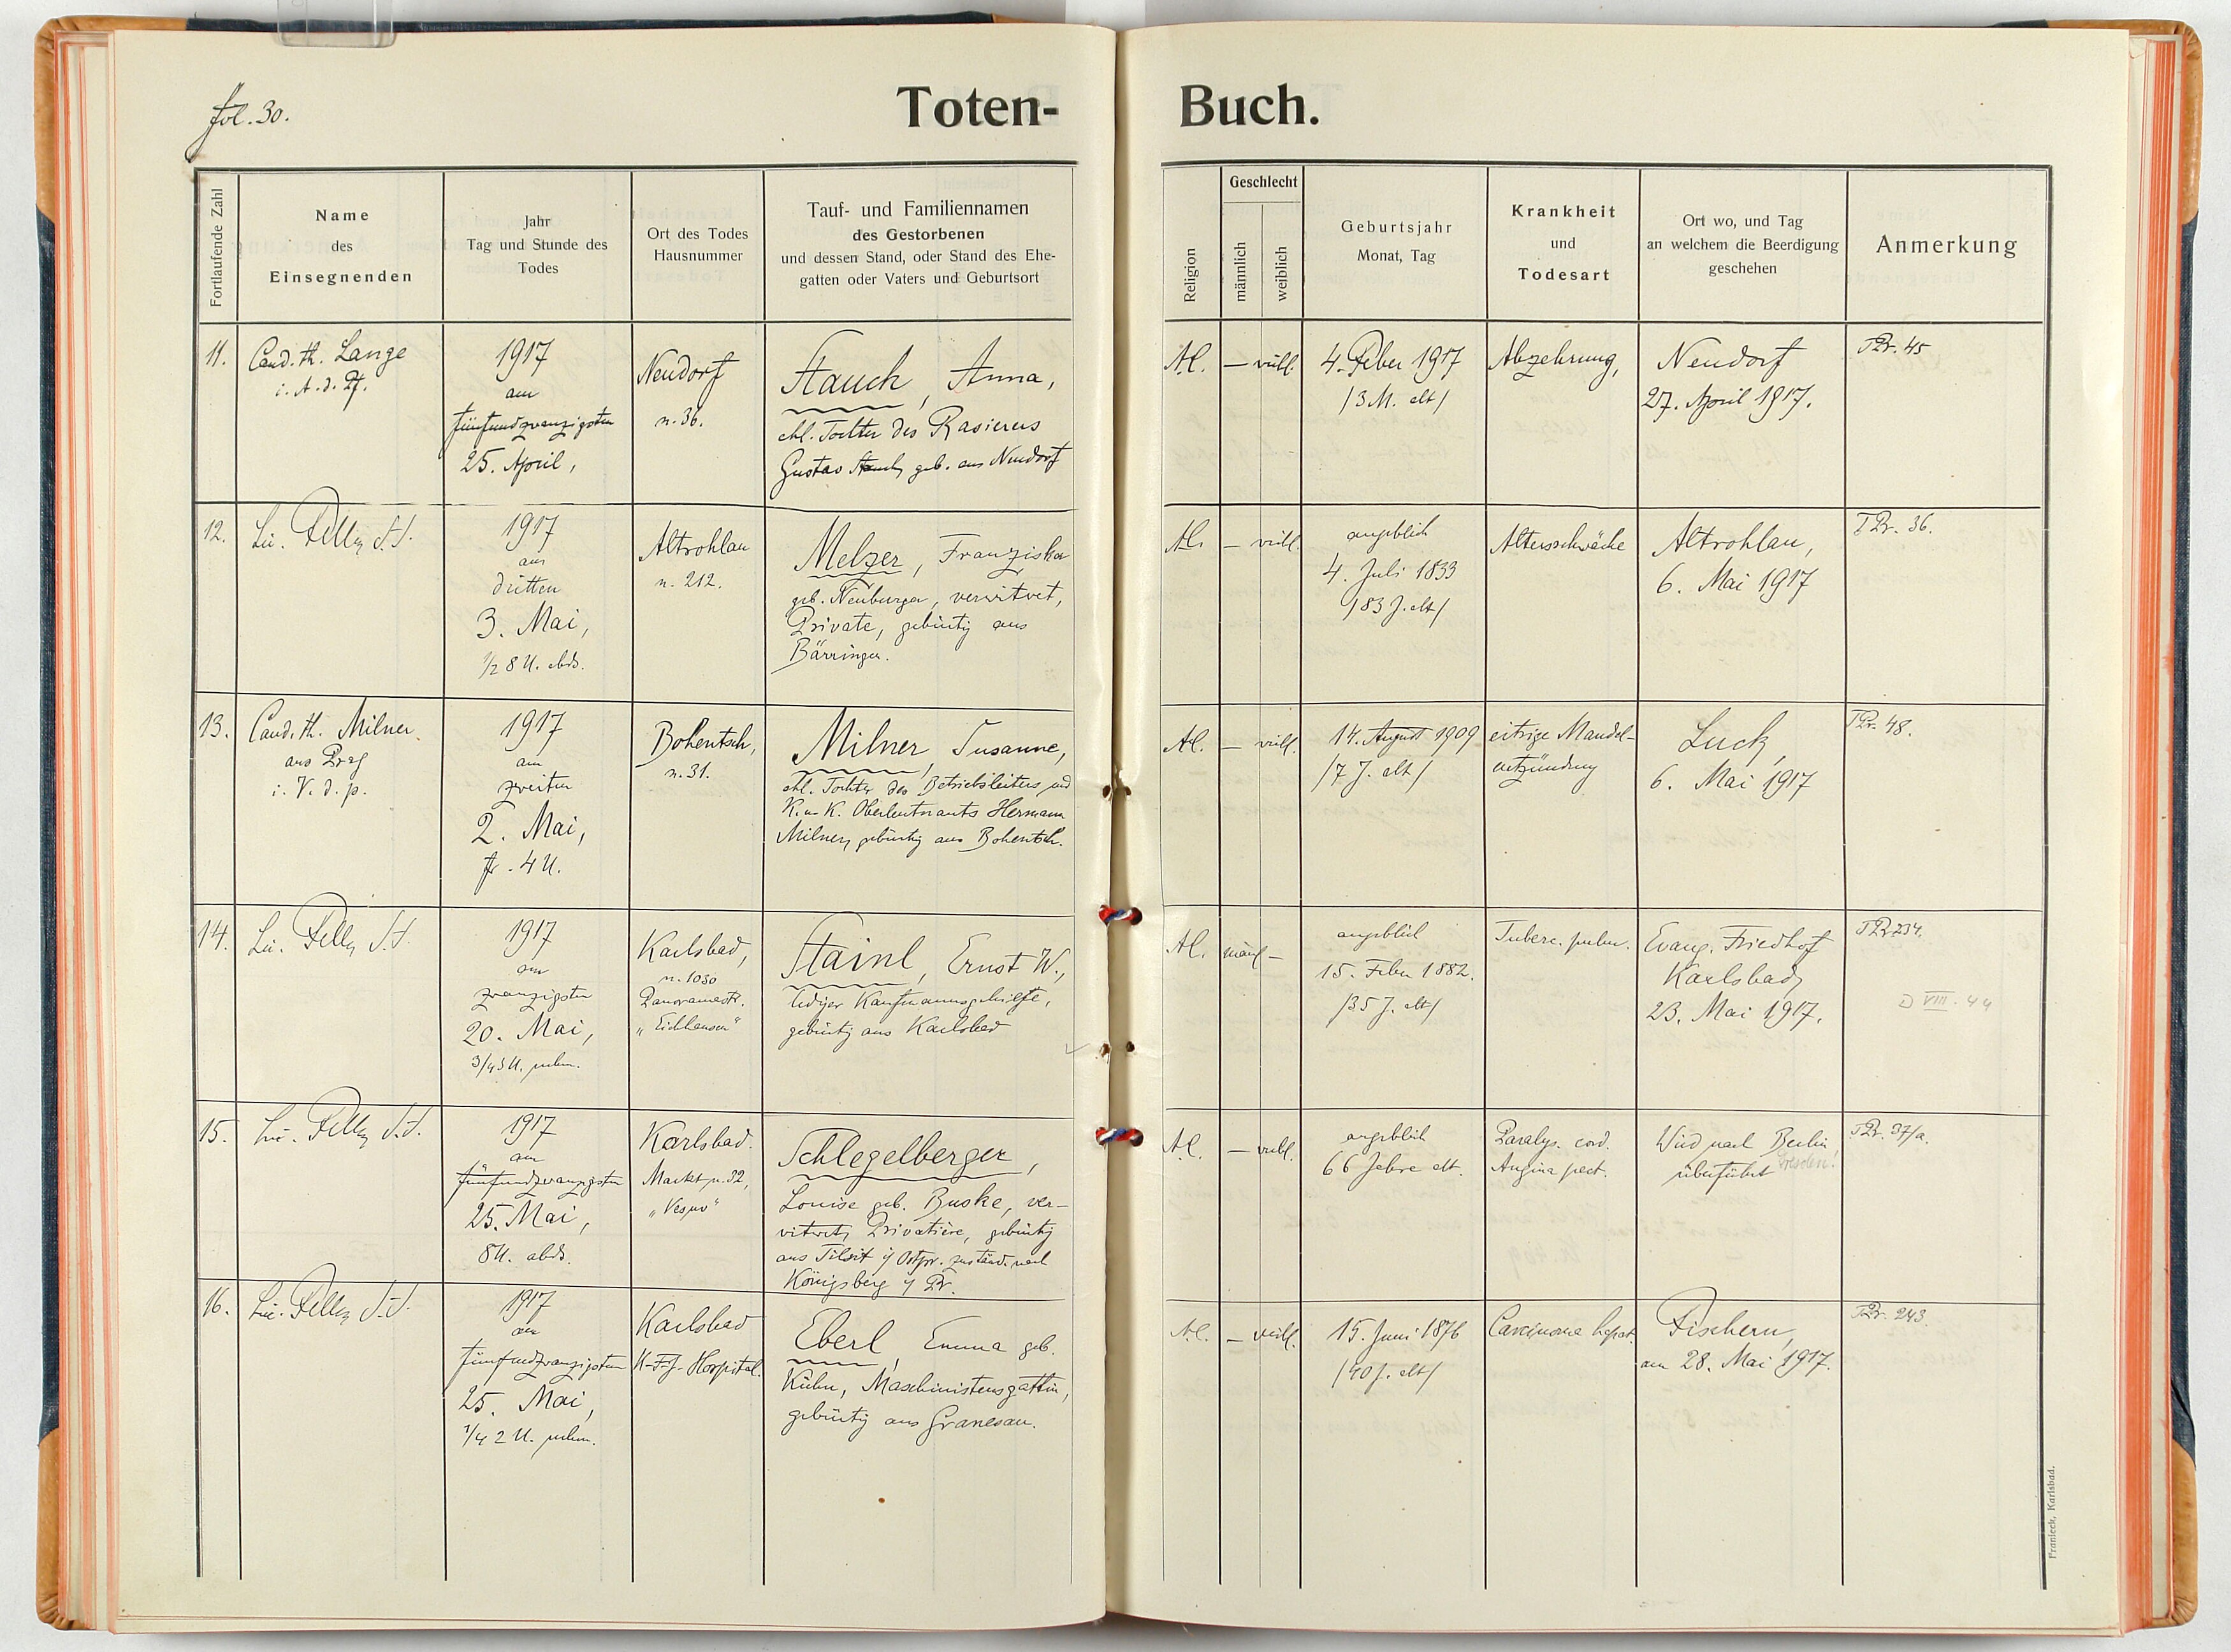 fol. 30.
Toten-
Fortlaufende Zahl
Name
des
Einsegnenden
Jahr
Tag und Stunde des
Todes
Ort des Todes
Hausnummer
Tauf- und Familiennamen
des Gestorbenen
und dessen Stand, oder Stand des Ehe-
gatten oder Vaters und Geburtsort
11.
Cand. th. Lange
i. A. d. Pf.
1917
am
fünfundzwanzigsten
25. April,
Neudorf
n. 36.
Stauch, Anna,
ehl. Tochter des Rasierers
Gustav Stauch, geb. aus Neudorf
12.
Lic.
1917
am
dritten
3. Mai,
1/2 8 U. abds.
Altrohlau
n. 212.
Melzer, Franziska
geb. Neuburger, verwitwet,
Private, gebürtig aus
Bärringen.
13.
Cand. th. Milner
aus Prag
i. V. d. p.
1917
am
zweiten
2. Mai,
fr. 4 U.
Bohentsch,
n. 31.
Milner, Susanne,
ehl. Tochter des Betriebsleiters und
K. u. K. Oberleutnants Hermann
Milner, gebürtig aus Bohentsch.
14.
Lic.
1917
am
zwanzigsten
20. Mai,
3/4 5 U. nchm.
Karlsbad,
n. 1030
Panoramastr.
Stainl, Ernst W.,
lediger Kaufmannsgehilfe,
gebürtig aus Karlsbad
15.
Lic.
1917
am
fünfundzwanzigsten
25. Mai,
8 U. abds.
Karlsbad.
Markt n. 32,
Schlegelberger,
Louise geb. Buske, ver-
witwete Privatière, gebürtig
aus Tilsit i/ Ostpr. zuständ. nach
Königsberg i/ Pr.
16.
Lic.
1917
am
fünfundzwanzigsten
25. Mai,
1/4 2 U. nchm.
Karlsbad
K-F-J-Hospital.
Eberl, Emma geb.
Kühn, Maschinistensgattin,
gebürtig aus Granesau.
Buch.
Religion
Geschlecht
männlich
weiblich
Geburtsjahr
Monat, Tag
Krankheit
und
Todesart
Ort wo, und Tag
an welchem die Beerdigung
geschehen
Anmerkung
A.C.
— weibl.
4. Feber 1917
/3 M. alt/
Abzehrung,
Neudorf
27. April 1917.
T Pr. 45
A.C.
— weibl.
angeblich
4. Juli 1833
/83 J. alt/
Altersschwäche
Altrohlau,
6. Mai 1917
T Pr. 36.
A.C.
— weibl.
14. August 1909
/7 J. alt/
eitrige Mandel-
entzündung
Luck,
6. Mai 1917
T Pr. 48.
A.C.
männl —
angeblich
15. Feber 1882.
/35 J. alt/
Tuberc. pulm.
Evang. Friedhof
Karlsbad,
23. Mai 1917.
T Pr 234.
D VIII. 44
A.C.
— weibl.
angeblich
66 Jahre alt.
Paralys. cord.
Angina pect.
Wird nach Berlin
überführt
T Pr. 37/a.
A.C.
— weibl.
15. Juni 1876
/40 J. alt/
Carcinoma hepat.
Fischern,
am 28. Mai 1917.
T Pr. 243.
Franieck, Karlsbad.